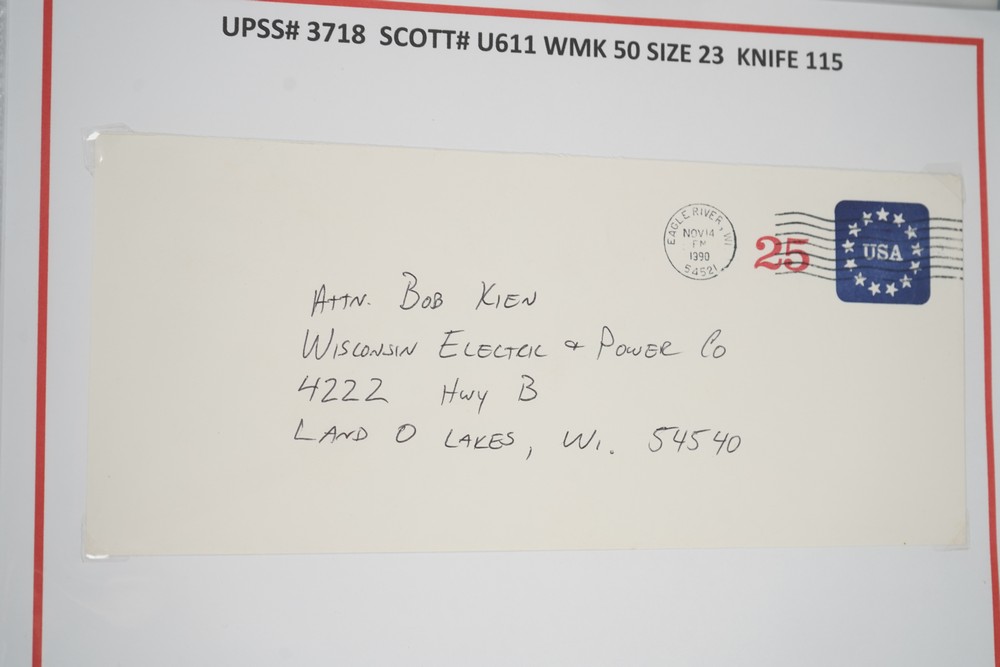 UPSS# 3718 SCOTT# U611 WMK 50 SIZE 23 KNIFE 115
EAGLE RIVER, WI
NOV 14
PM
1990
54521
25
USA
ATTN. BOB KIEN
WISCONSIN ELECTRIC & POWER CO
4222 HWY B
LAND O LAKES, WI. 54540